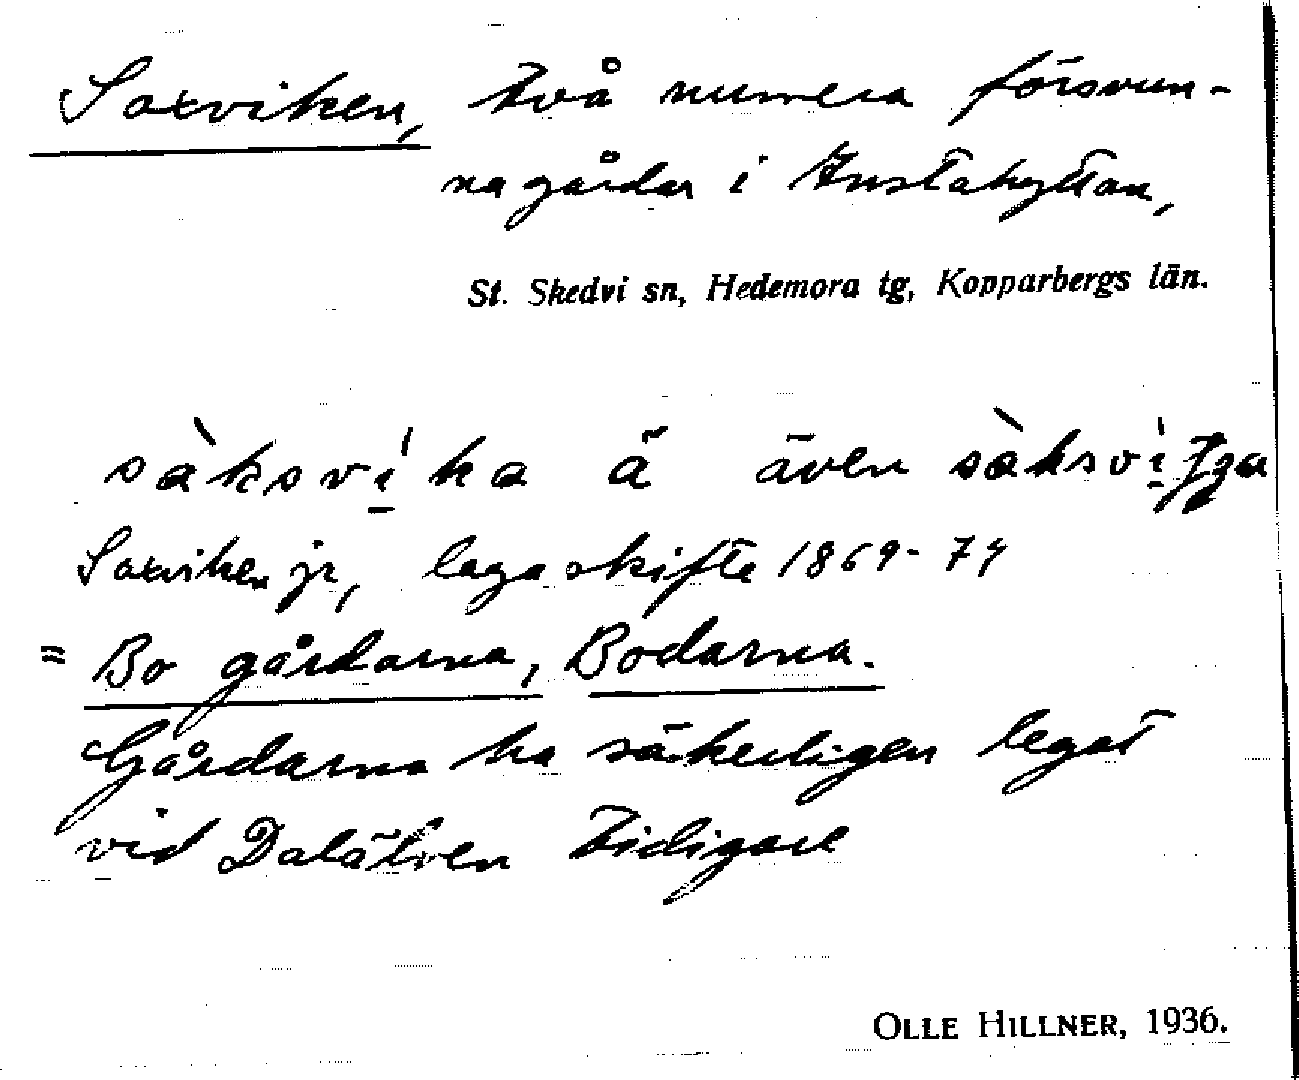 Saxviken, två numera försvun-
na gårdar i Kustahyttan,
St. Skedvi sn, Hedemora tg, Kopparbergs län.
sàksvíka ä även sàksvi
Saxviken jr, laga skifte 1869-74
= Bo gårdarna, Bodarna.
Gårdarna ha säkerligen legat
vid Dalälven tidigare
OLLE HILLNER, 1936.